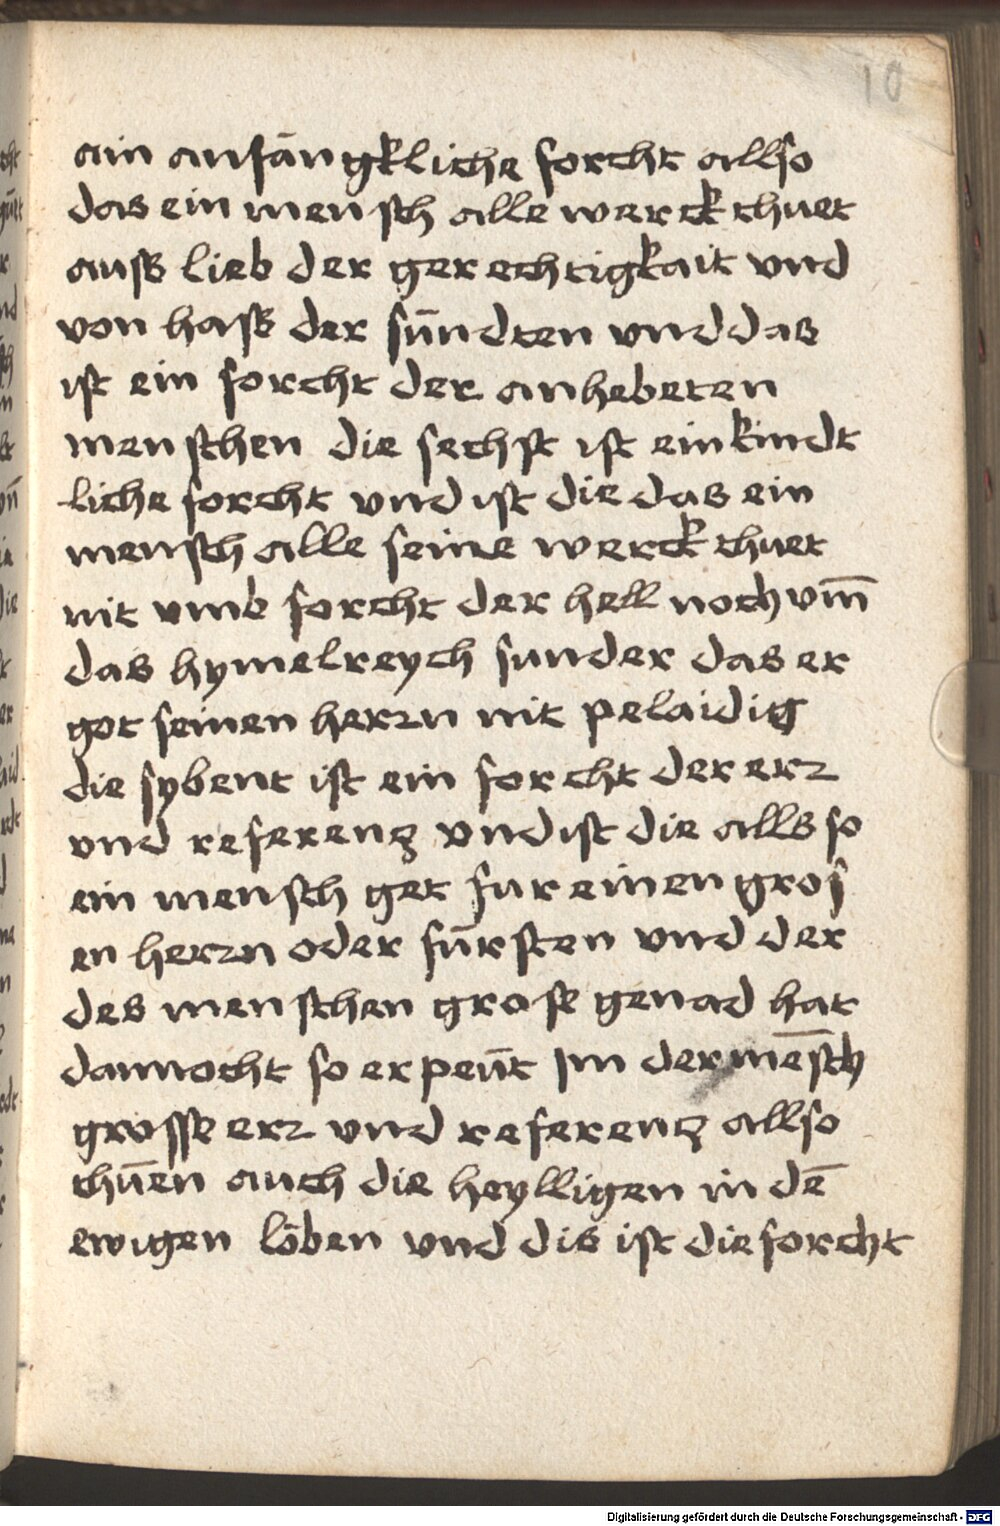 10
ain anfāngkliche forcht allso
das ein mensch alle werck thuet
auß lieb der gerechtigkait vnd
von haß der sūndten vnd das
ist ein forcht der anhebeten
menschen die sechst ist ein kindt
liche forcht vnd ist die das ein
mensch alle seine werck thuet
nit vmb forcht der hell noch vm̄
das hymelreych sunder das er
got seinen herrn nit pelaidig
die sybent ist ein forcht der err
vnd referenz vnd ist die alls so
ein mensch get fur einen gros
en herrn oder fūrsten vnd der
des menschen grose genad hat
dannocht so erpeūt Im der mēsch
grosse err vnd referenz allso
thūen auch die heylligen in dē
ewigen lōben vnd dis ist die forcht
Digitalisierung gefördert durch die Deutsche Forschungsgemeinschaft - DFG